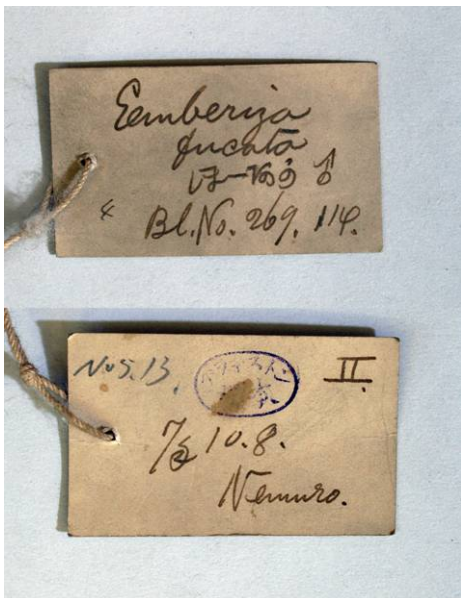 Emberiza
fucata
♂
Bl. No. 269. 114.
No 5.13.
II.
10.8.
Nemuro.